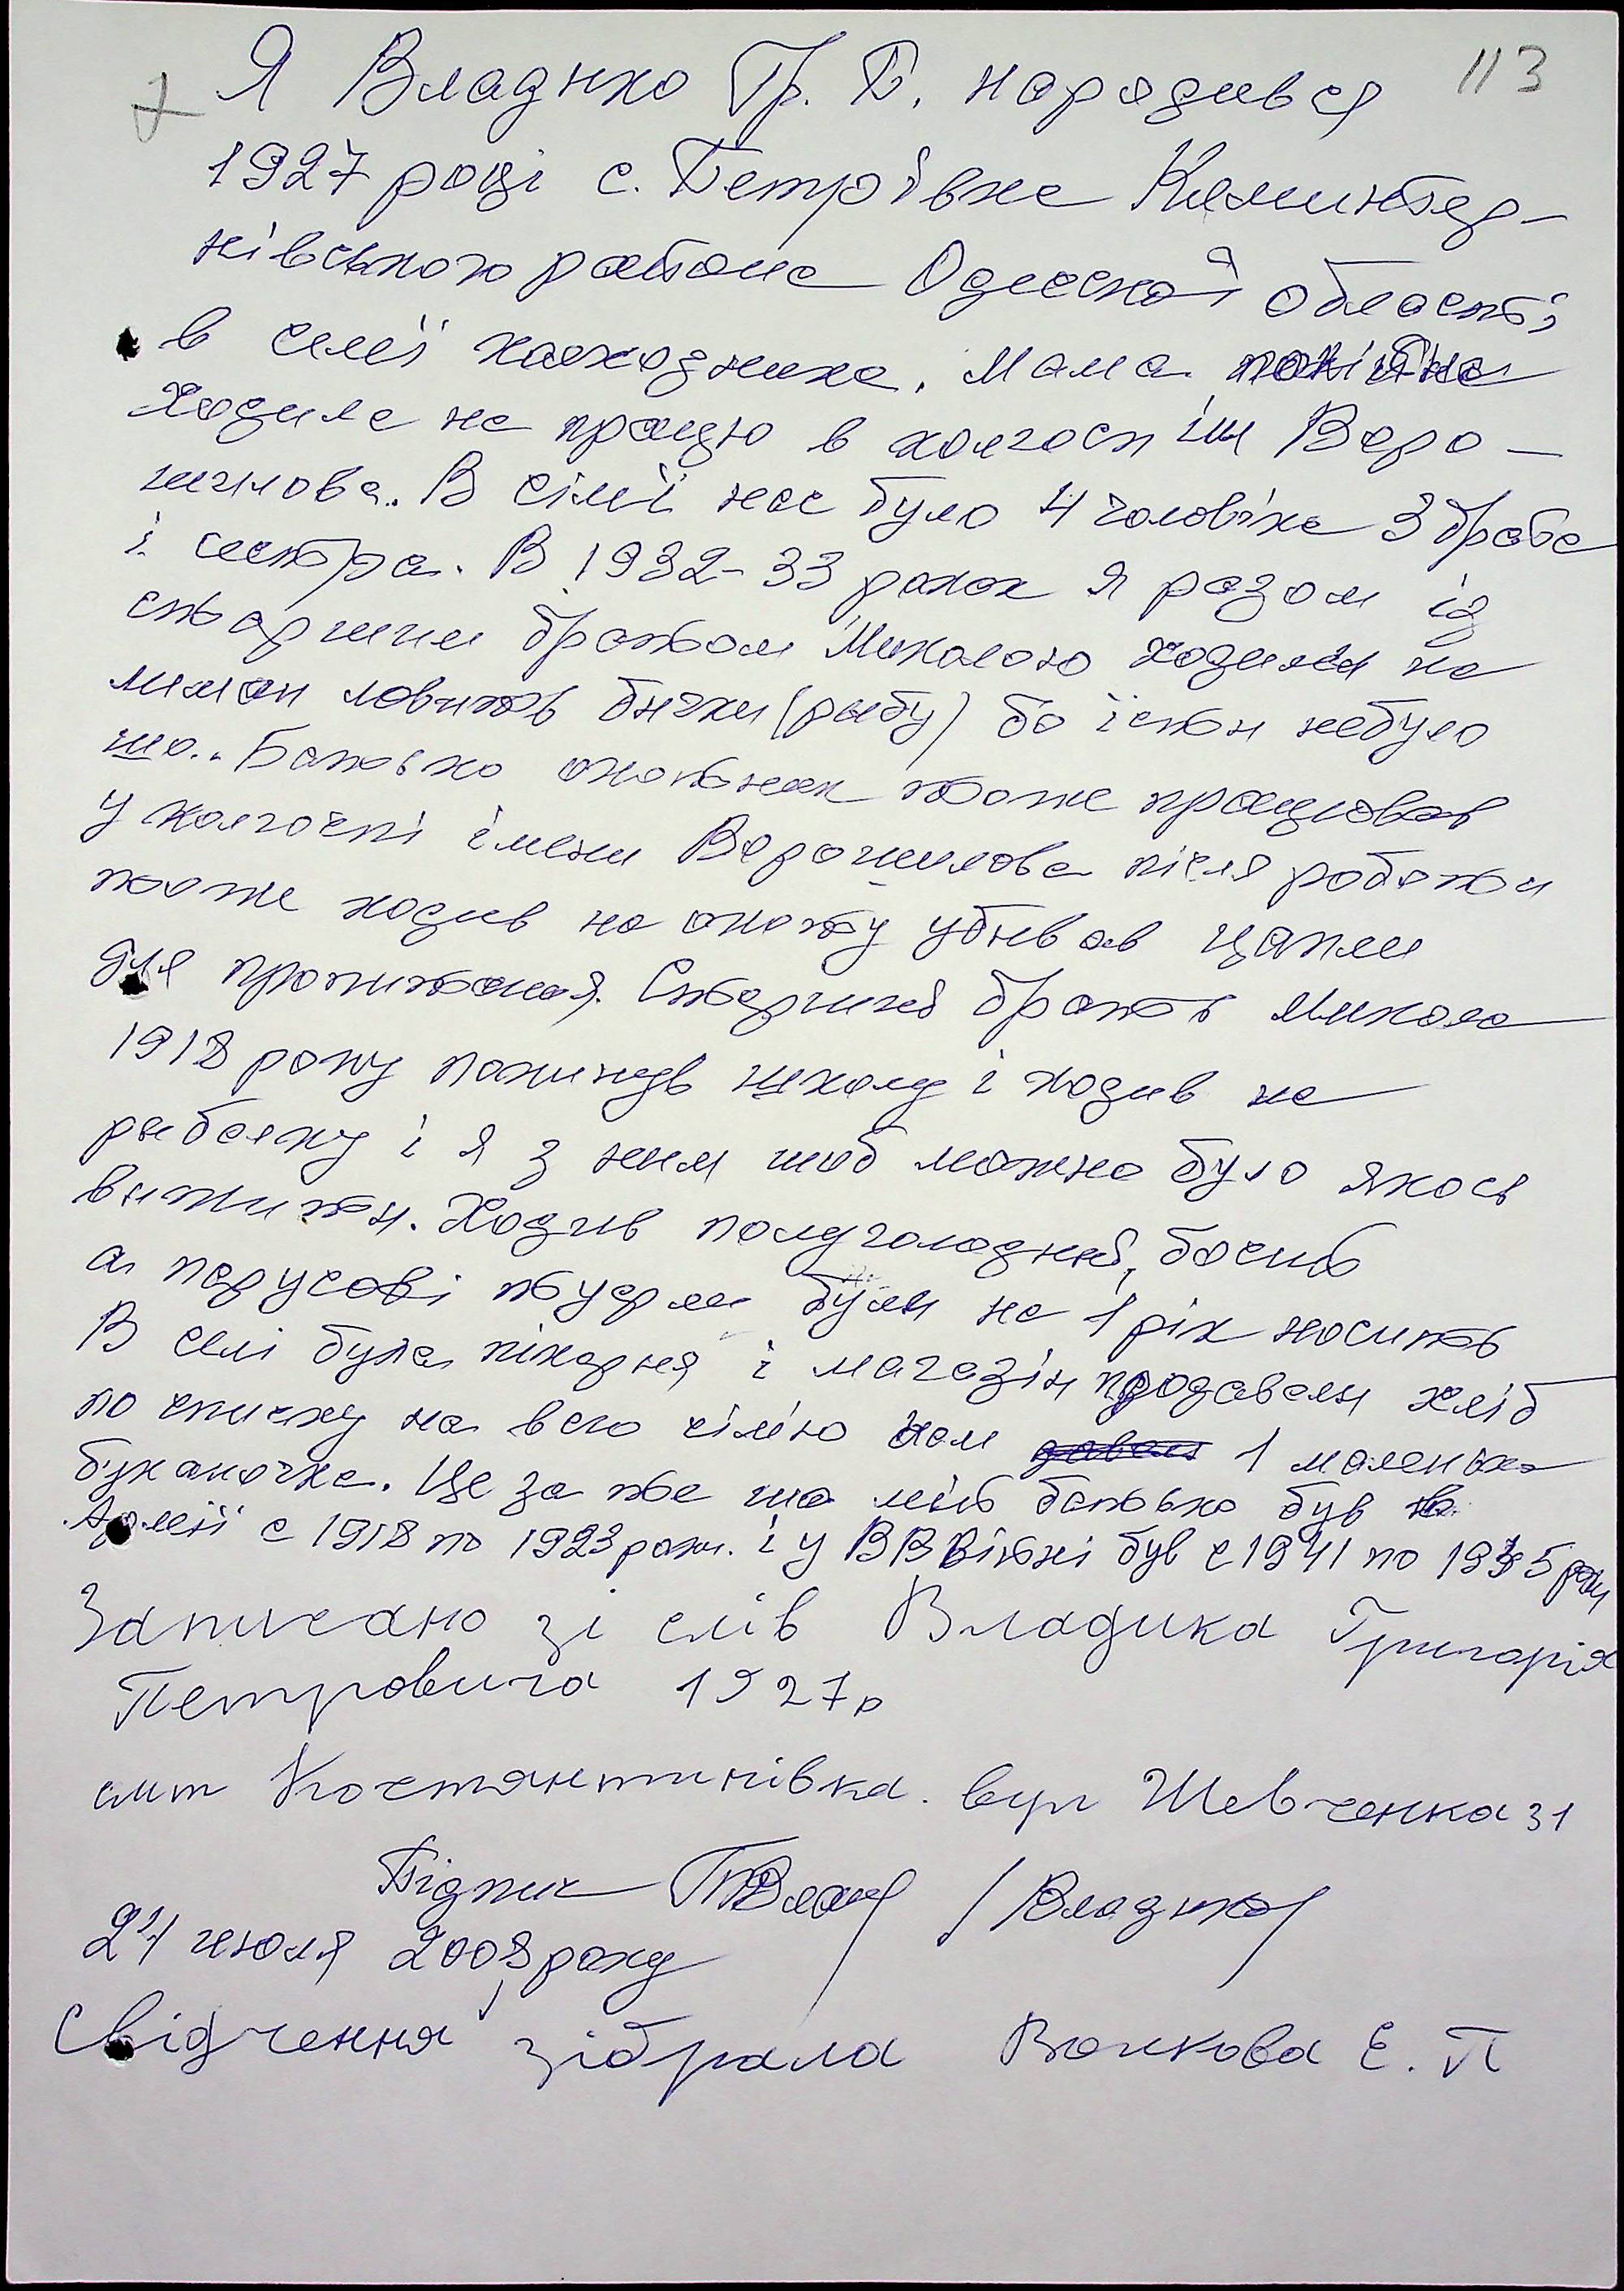 113
Я Владико Гр. П. народився
1927 році с. Петрівка Каминтер-
нівського района Одеської області
в семї колходника. Мама покійна
ходила на працю в колгосп ім Воро-
шилова. В сімї нас було 4 чоловіка 3 брата
і сестра. В 1932-33 роках я разом із
старшим братом Миколою ходили на
лиман ловить бички (рыбу) бо їсти небуло
що.. Батько охотник тоже працював
у колгоспі імени Ворошилова після роботи
тоже ходив на охоту убивав цапли
для пропитания. Старший брат Микола
1918 року покинув школу і ходив на
рыбалку і я з ним шоб можна було якось
вижити. Ходив полуголодний, босий
а парусові туфли були на 1 рік носить
В селі була пікарня і магазін продавали хліб
по списку на всю сімю нам давали 1 маленька
буханочка. Це за те що мій батько був в
Армії с 1918 по 1923 роки. і у ВВ Війні був с 1941 по 1945 роки
Записано зі слів Владика Григорія
Петровича 1927р
смт Костянтинівка. вул Шевченка 31
Підпис /Владико/
24 июля 2008 року
Свідчення зібрала Волкова Є. П